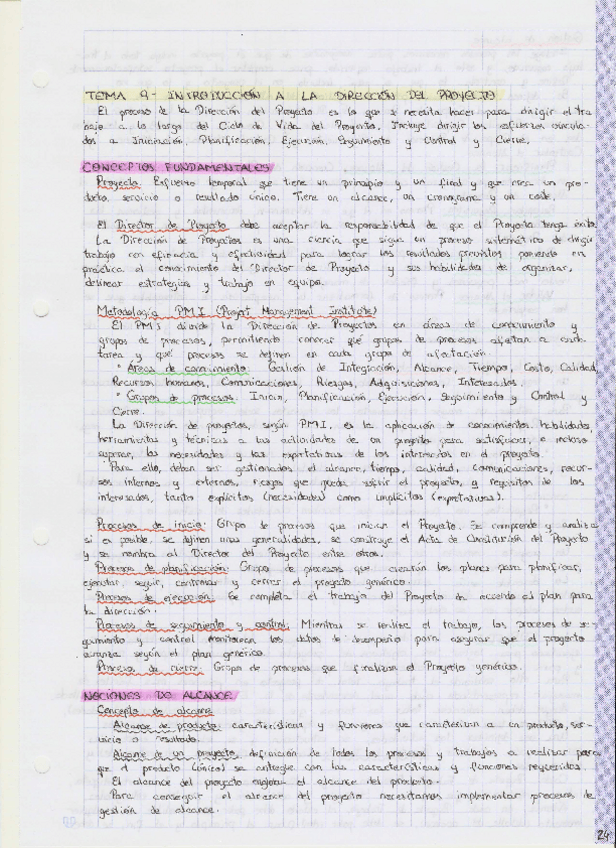 TEMA 9- INTRODUCCIÓN A LA DIRECCIÓN DEL PROYECTO
El proceso de la Dirección del Proyecto es lo que se necesita hacer para dirigir el tra
bajo a lo largo del Ciclo de Vida del Proyecto. Incluye dirigir los esfuerzos vincula-
dos a Iniciación, Planificación, Ejecución, Seguimiento y Control y Cierre.
CONCEPTOS FUNDAMENTALES
Proyecto: Esfuerzo temporal que tiene un principio y un final y que crea un pro-
ducto, servicio o resultado único. Tiene un alcance, un cronograma y un coste.
El Director de Proyecto debe aceptar la responsabilidad de que el Proyecto tenga éxito.
La Dirección de Proyectos es una ciencia que sigue un proceso sistemático de dirigir
trabajo con eficiencia y efectividad para lograr los resultados previstos poniendo en
práctica el conocimiento del Director de Proyecto y sus habilidades de organizar,
delinear estrategias y trabajo en equipo.
Metodología PMI (Project Management Institute)
El PMI divide la Dirección de Proyectos en áreas de conocimiento y
grupos de procesos, permitiendo conocer qué grupos de procesos afectan a cada
tarea y qué procesos se definen en cada grupo de afectación.
· Áreas de conocimiento: Gestión de Integración, Alcance, Tiempo, Costo, Calidad,
Recursos humanos, Comunicaciones, Riesgos, Adquisiciones, Interesados.
· Grupos de procesos: Inicio, Planificación, Ejecución, Seguimiento y Control y
Cierre.
La Dirección de proyectos, según PMI, es la aplicación de conocimientos, habilidades,
herramientas y técnicas a las actividades de un proyecto para satisfacer, e incluso
superar, las necesidades y las expectativas de los interesados en el proyecto.
Para ello, deben ser gestionados el alcance, tiempo, calidad, comunicaciones, recur-
sos internos y externos, riesgos que pueda sufrir el proyecto, y requisitos de los
interesados, tanto explícitos (necesidades) como implícitos (expectativas).
Procesos de inicio: Grupo de procesos que inician el Proyecto. Se comprende y analiza
si es posible, se definen unas generalidades, se construye el Acta de Constitución del Proyecto
y se nombra al Director del Proyecto entre otros.
Procesos de planificación: Grupo de procesos que crearán los planes para planificar,
ejecutar, seguir, controlar y cerrar el proyecto genérico.
Procesos de ejecución: Se completa el trabajo del Proyecto de acuerdo al plan para
la dirección.
Procesos de seguimiento y control: Mientras se realiza el trabajo, los procesos de se-
guimiento y control monitorean los datos de desempeño para asegurar que el proyecto
avanza según el plan genérico.
Procesos de cierre: Grupo de procesos que finalizan el Proyecto genérico.
NOCIONES DE ALCANCE
Concepto de alcance
Alcance de producto: características y funciones que caracterizan a un producto, ser-
vicio o resultado.
Alcance de un proyecto: definición de todos los procesos y trabajos a realizar para
que el producto (único) se entregue con las características y funciones requeridas.
El alcance del proyecto engloba el alcance del producto.
Para conseguir el alcance del proyecto necesitamos implementar procesos de
gestión de alcance.
24